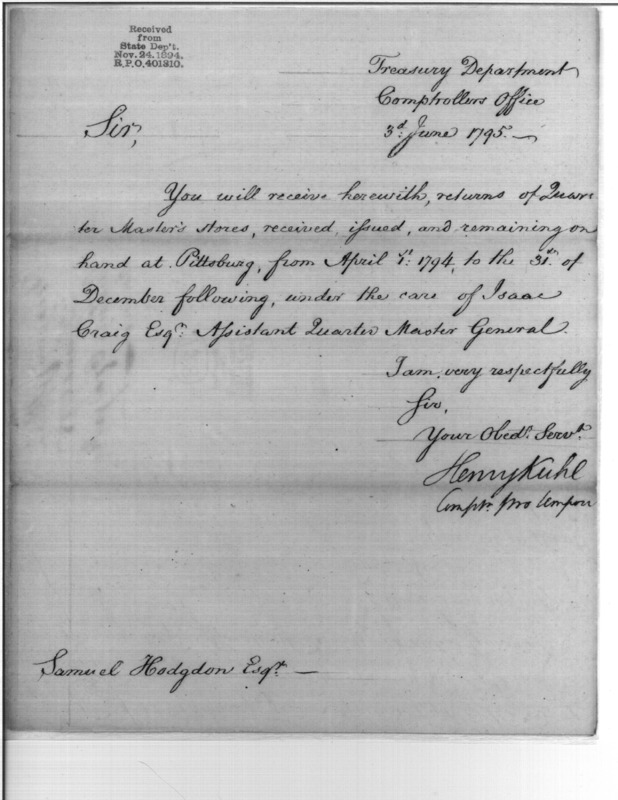 Received
from
State Dep't.
Nov. 24. 1894.
R.P.O. 401310.
Treasury Department
Comptrollers Office
3d. June 1795.—
Sir,
You will receive herewith, returns of Quar-
ter Master's stores, received, issued, and remaining on
hand at Pittsburg, from April 1st: 1794, to the 31st. of
December following, under the care of Isaac
Craig Esqr. Assistant Quarter Master General.
I am, very respectfully
Sir,
Your Obedt. Servt.
Henry Kuhl
Comptr. pro tempore
Samuel Hodgdon Esqr. —